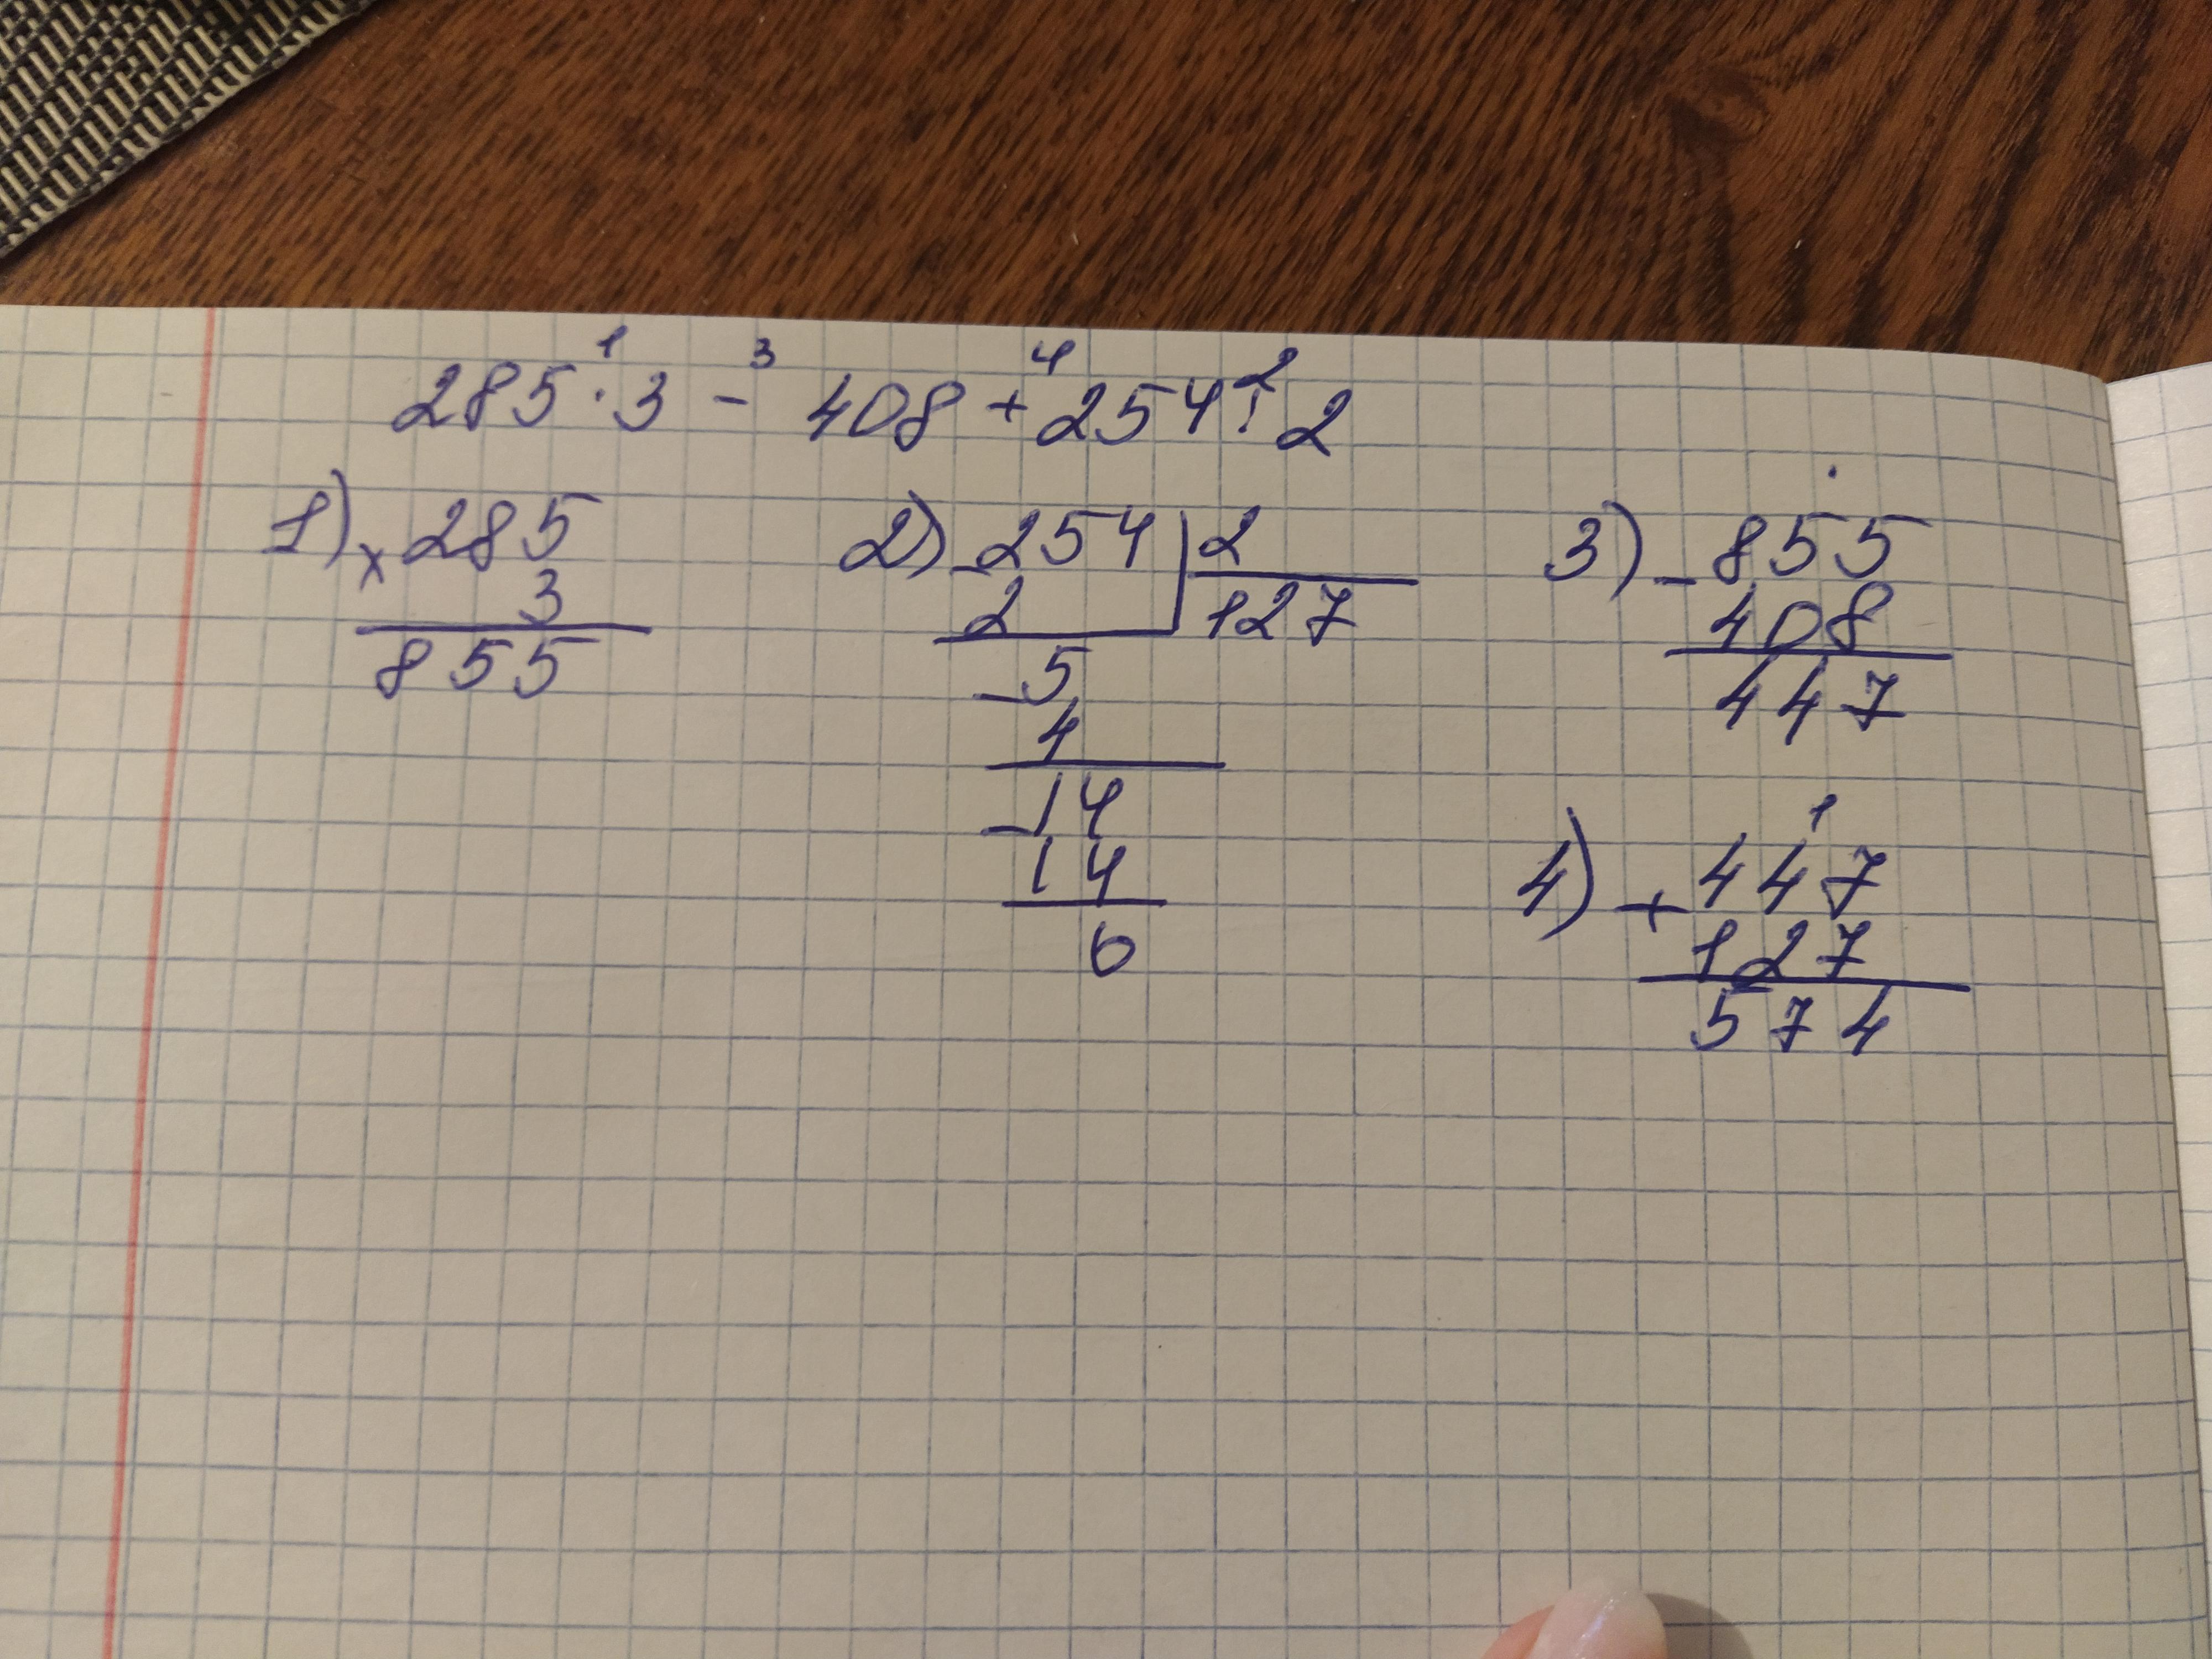 1 3 4 2
285 · 3 - 408 + 254 : 2
1) × 285
3
855
2) - 254 | 2
2 127
- 5
4
- 14
14
0
3) - 855
408
447
1
4) + 447
127
574